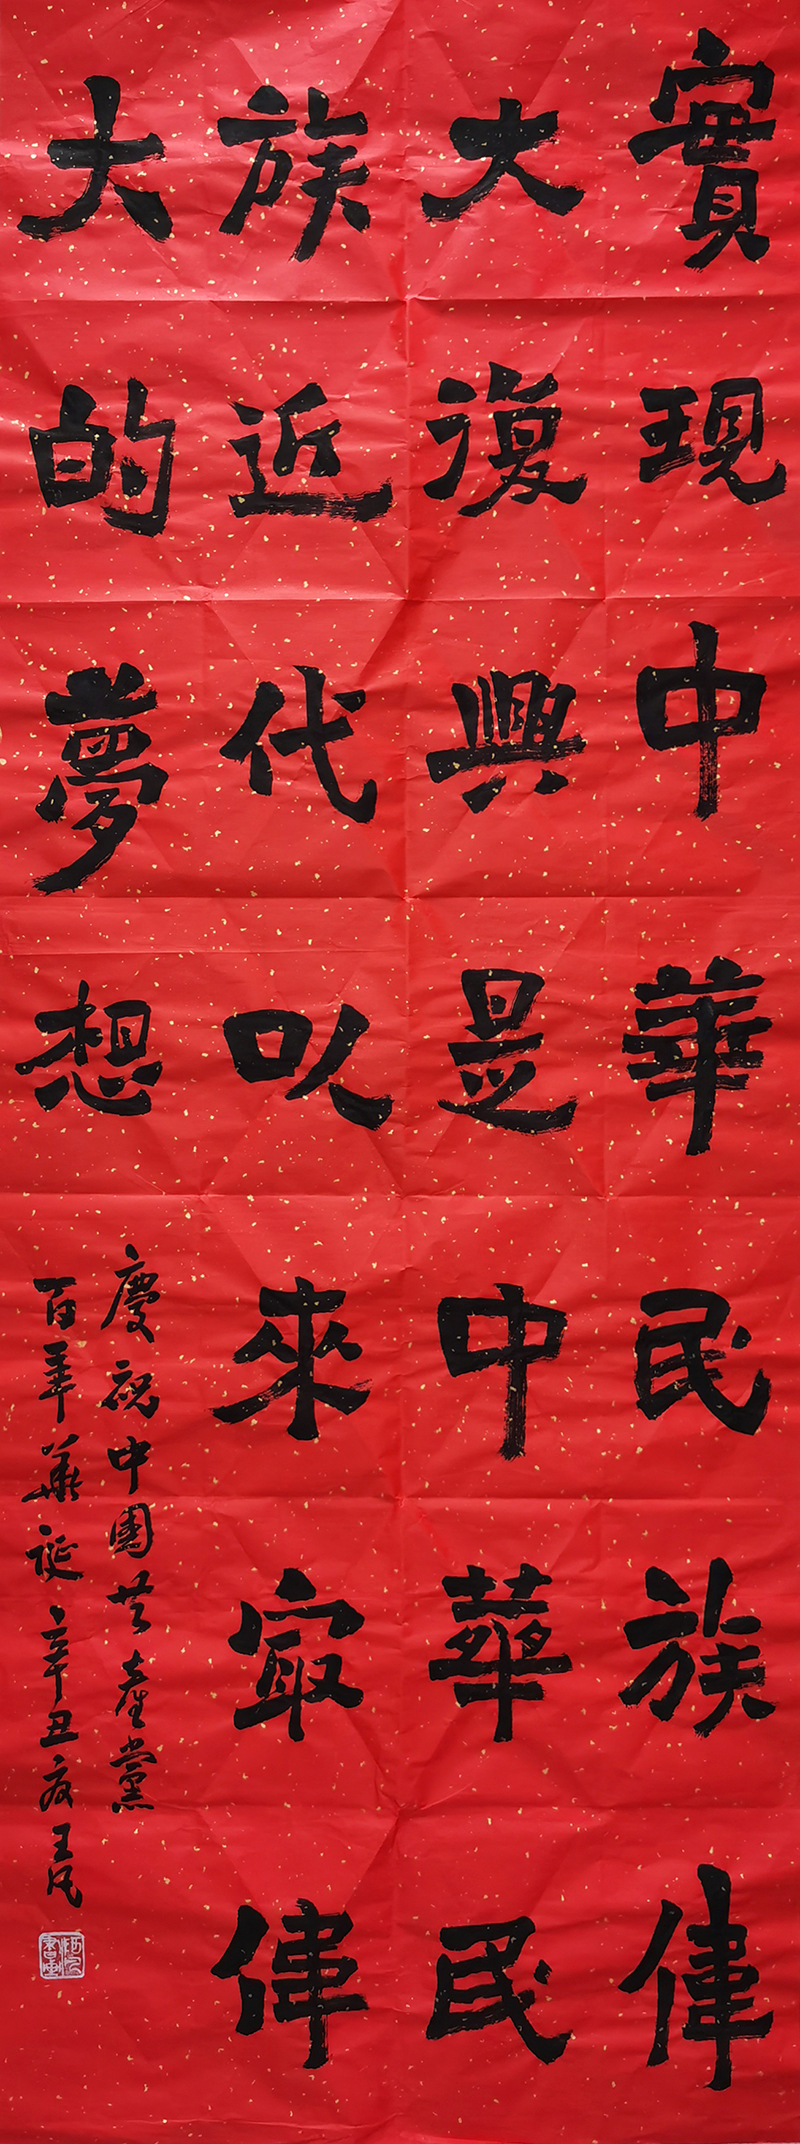 實現中華民族偉
大復興是中華民
族近代以來最偉
大的夢想
慶祝中國共產黨
百年華誕辛丑夜王凡